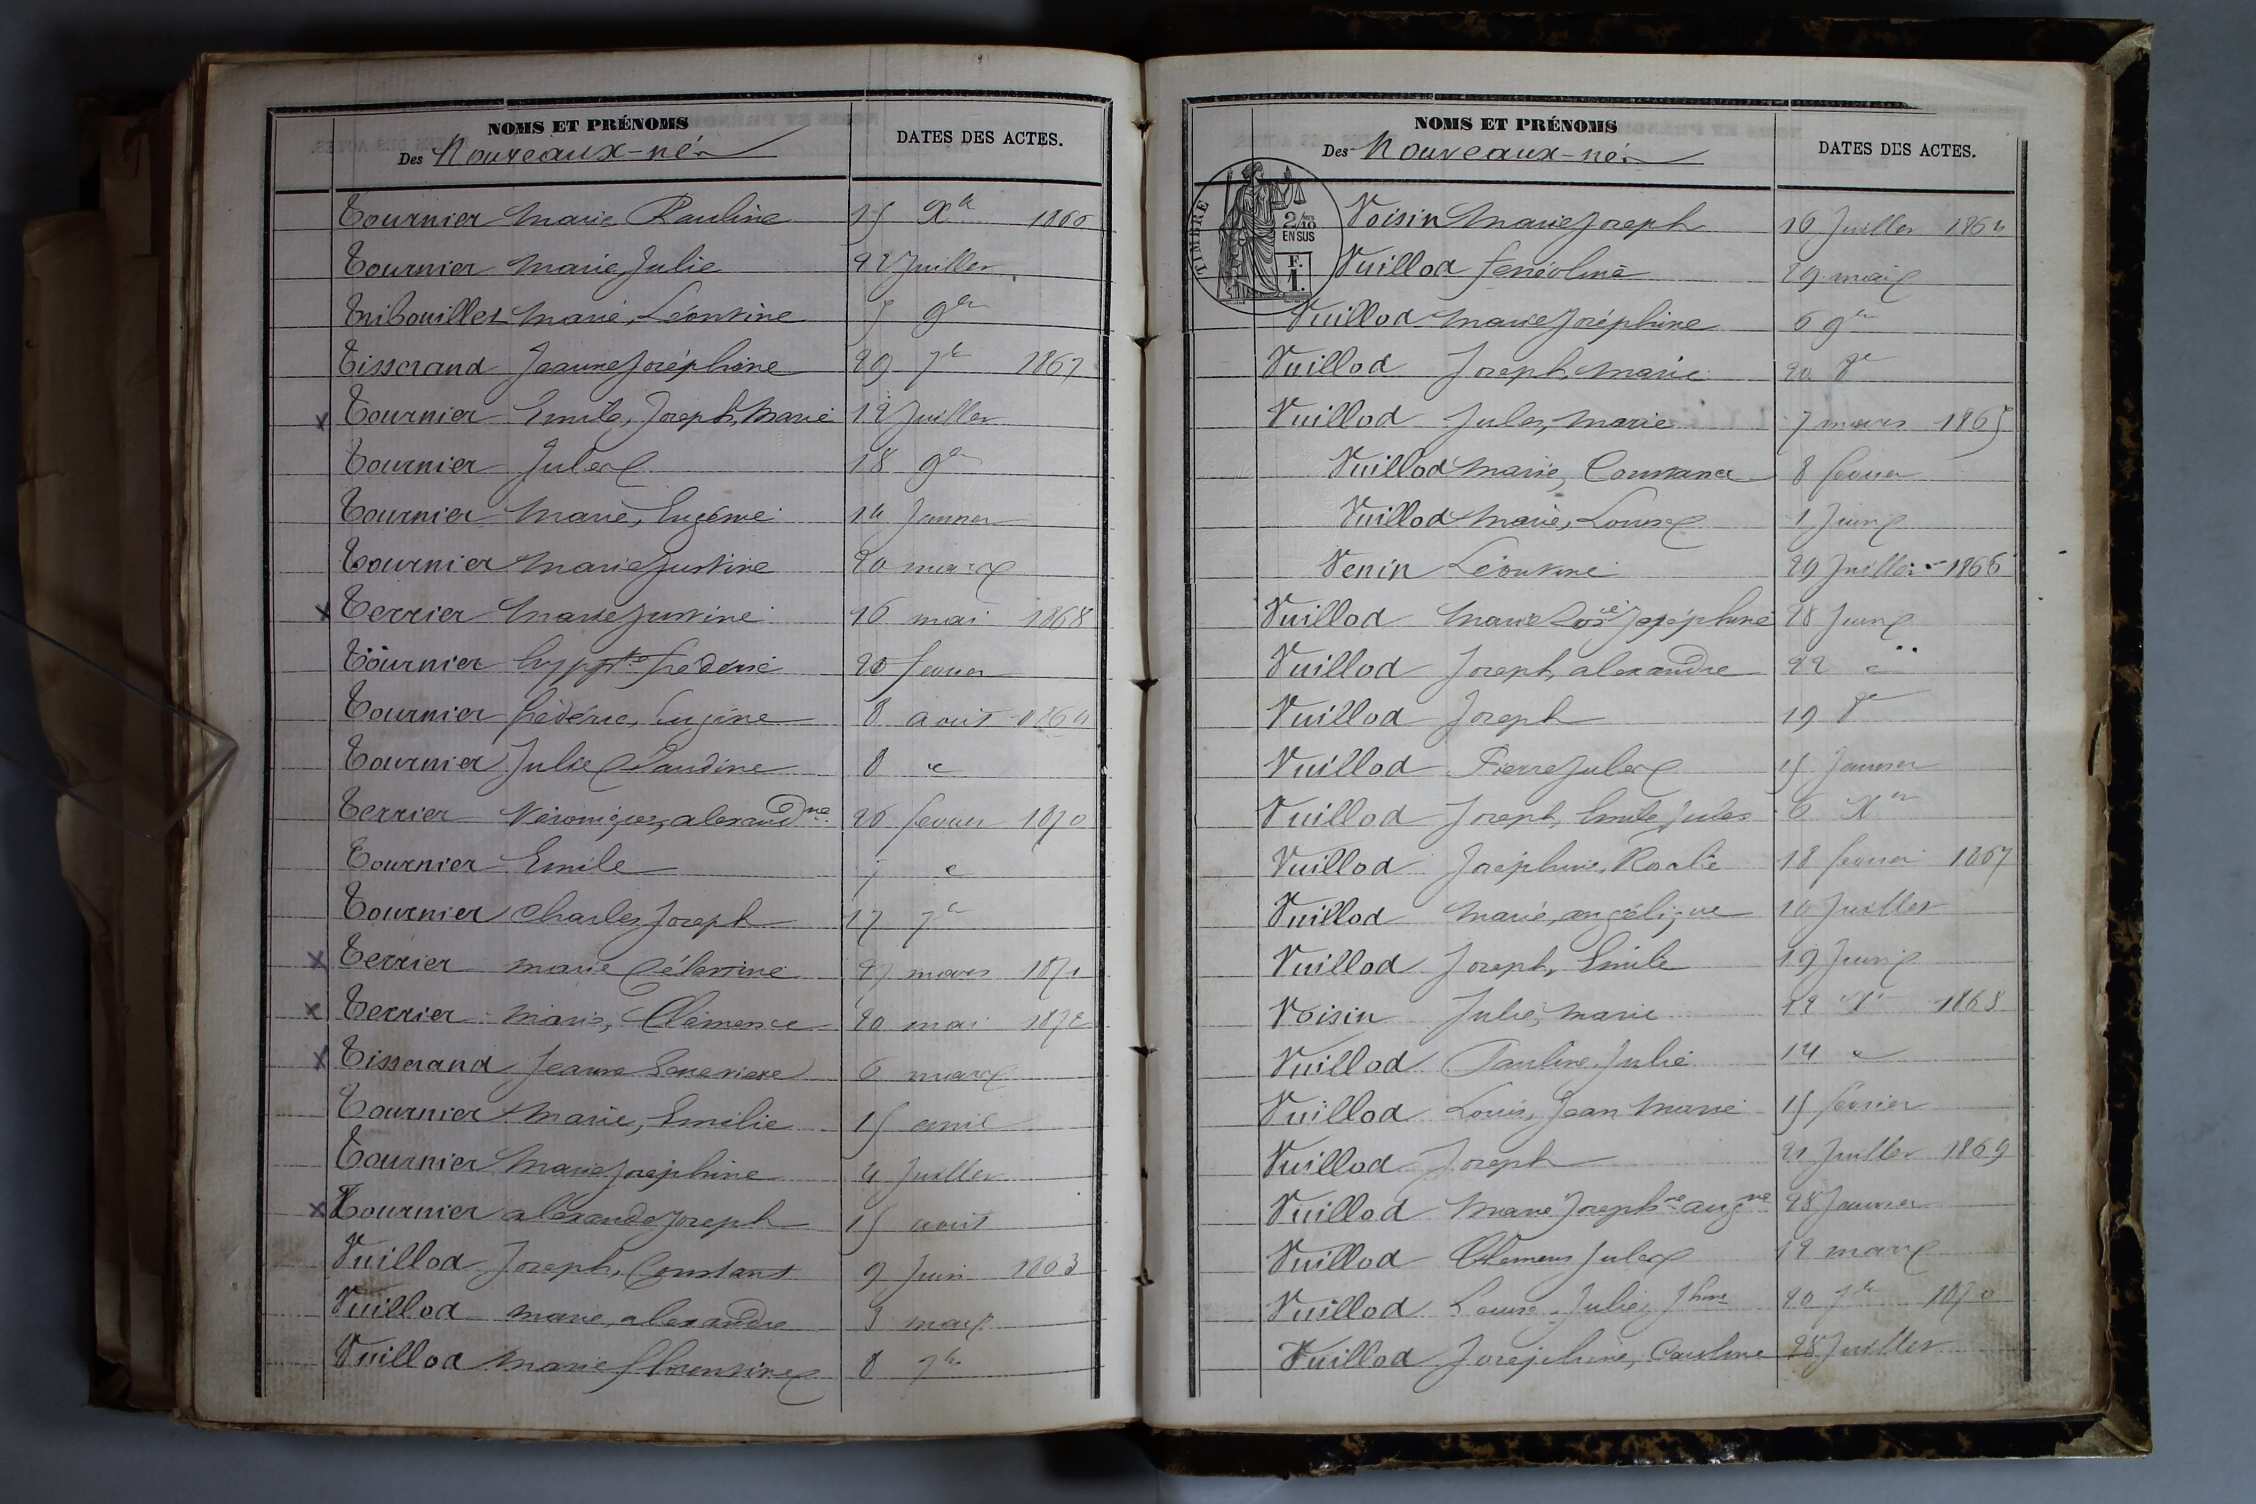 NOMS ET PRÉNOMS
Des Nouveaux-nés
DATES DES ACTES.
Tournier Marie Pauline 15 Xbre 1866
Tournier Marie, Julie 22 Juillet
Tribouillet Marie, Léontine 5 9bre
Tisserand Jeanne Joséphine 29 7bre 1867
x Tournier Emile, Joseph, Marie 12 Juillet
Tournier Jules 18 9bre
Tournier Marie, Eugénie 14 Janvier
Tournier Marie Justine 20 mars
x Terrier Marie Justine 16 mai 1868
Tournier hyppte frédéric 20 fevrier
Tournier frédéric, Eugène 8 aout
Tournier Julie Claudine 8 "
Terrier Véronique, alexandne 26 fevrier 1870
Tournier Emile "
Tournier Charles Joseph 17 7bre
x Terrier marie Célestine 27 mars 1871
x Terrier Marie, Clémence 20 mai 1872
x Tisserand Jeanne Genevieve 6 mars
Tournier Marie, Emilie 15 avril
Tournier Marie Joséphine 4 Juillet
x Tournier alexandre Joseph 15 aout
Vuillod Joseph, Constant 9 Juin 1863
Vuillod marie, alexandre 3 mars
Vuillod Marie florentine 8 7bre
NOMS ET PRÉNOMS
Des Nouveaux-nés
DATES DES ACTES.
TIMBRE
2/10
EN SUS
F.
1.
Voisin Marie Joseph 16 Juillet 1864
Vuillod fénéoline 29 mai
Vuillod Marie Joséphine 6 9bre
Vuillod Joseph, Marie 20 8bre
Vuillod Jules, Marie 7 mars 1865
Vuillod Marie, Constance 8 fevrier
Vuillod Marie, Louise 1 Juin
Venin Léontine 29 Juillet 1866
Vuillod Marie Joséphine 28 Juin
Vuillod Joseph, alexandre 22 "
Vuillod Joseph 19 8bre
Vuillod Pierre Jules 15 Janvier
Vuillod Joseph, Emile, Jules 6 Xbre
Vuillod Joséphine, Rosalie 18 fevrier 1867
Vuillod Marie, angélique 10 Juillet
Vuillod Joseph, Emile 19 Juin
Voisin Julie, Marie 1868
Vuillod Pauline, Julie 14 "
Vuillod Louis, Jean Marie 15 février
Vuillod Joseph 21 Juillet 1869
Vuillod Marie Josephne augne 28 Janvier
Vuillod Clémens Jules 12 mars
Vuillod Louise Julie, Jhine 20 7bre 1870
Vuillod Joséphine, Caroline 28 Juillet